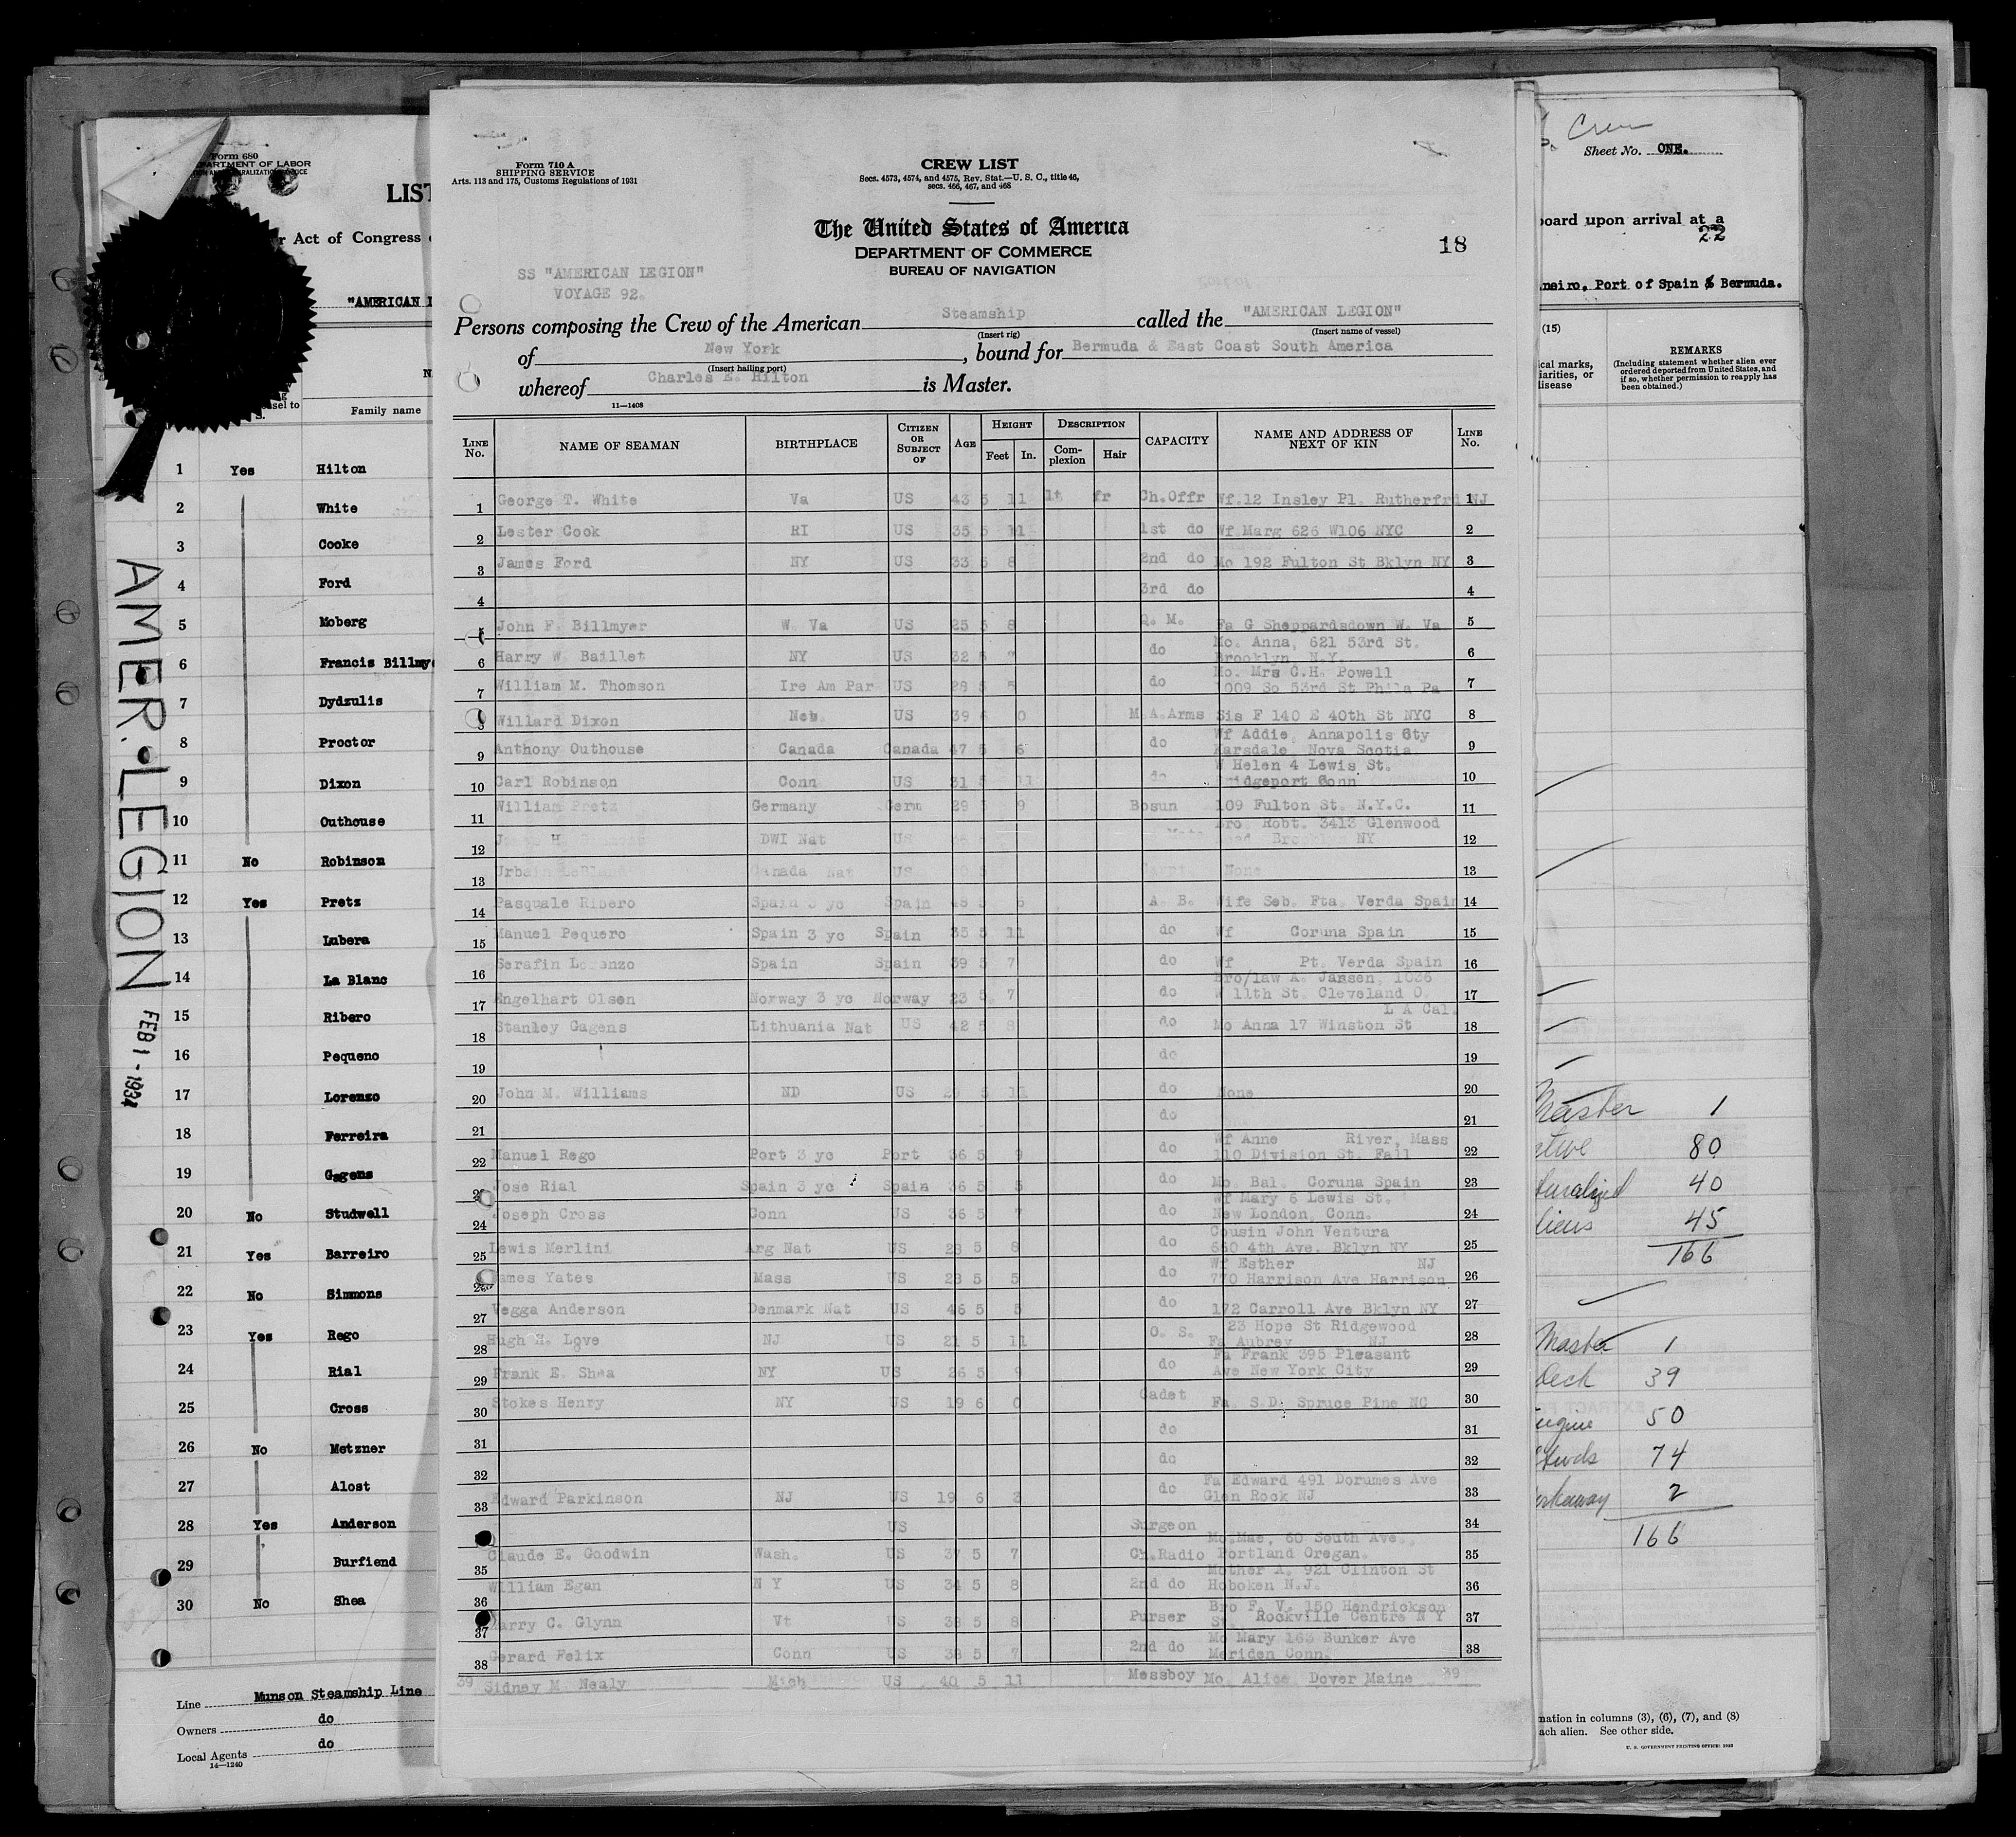 Form 680
LIST
Act of Congress
"AMERICAN
Family name
1 Yes Hilton
2 White
3 Cooke
4 Ford
5 Moberg
6 Francis Billmye
7 Dydzulis
8 Proctor
9 Dixon
10 Outhouse
11 No Robinson
12 Yes Pretz
13 Lubera
14 La Blanc
15 Ribero
16 Pequeno
17 Lorenzo
18 Ferreira
19 Gagens
20 No Studwell
21 Yes Barreiro
22 No Simmons
23 Yes Rego
24 Rial
25 Cross
26 No Metzner
27 Alost
28 Yes Anderson
29 Burfiend
30 No Shea
Line Munson Steamship Line
Owners do
Local Agents do
14—1240
AMER. LEGION
FEB 1 - 1934
Form 710 A
SHIPPING SERVICE
Arts. 113 and 175, Customs Regulations of 1931
CREW LIST
Secs. 4573, 4574, and 4575, Rev. Stat.—U. S. C., title 46,
secs. 466, 467, and 468
The United States of America
DEPARTMENT OF COMMERCE
BUREAU OF NAVIGATION
18
SS "AMERICAN LEGION"
VOYAGE 92.
Persons composing the Crew of the American Steamship called the "AMERICAN LEGION"
(Insert rig) (Insert name of vessel)
of New York, bound for Bermuda & East Coast South America
(Insert hailing port)
whereof Charles E. Hilton is Master.
11—1408
LINE No. NAME OF SEAMAN BIRTHPLACE CITIZEN OR SUBJECT OF AGE HEIGHT Feet In. DESCRIPTION Complexion Hair CAPACITY NAME AND ADDRESS OF NEXT OF KIN LINE No.
1 George T. White Va US 43 5 11 lt fr Ch.Offr Wf.12 Insley Pl. Rutherfrd NJ 1
2 Lester Cook RI US 35 5 11 1st do Wf Marg 626 W106 NYC 2
3 James Ford NY US 33 5 8 2nd do Mo 192 Fulton St Bklyn NY 3
4 3rd do 4
5 John F. Billmyer W. Va US 25 5 8 Q. M. Fa G Sheppardsdown W. Va 5
6 Harry W. Baillet NY US 32 5 7 do Mo. Anna, 621 53rd St. Brooklyn, N.Y. 6
7 William M. Thomson Ire Am Par US 28 5 5 do Mo. Mrs C.H. Powell 1009 So 53rd St Phila Pa 7
8 Willard Dixon Neb. US 39 6 0 M.A.Arms Sis F 140 E 40th St NYC 8
9 Anthony Outhouse Canada Canada 47 5 6 do Wf Addie, Annapolis Cty Karsdale, Nova Scotia. 9
10 Carl Robinson Conn US 31 5 11 do W Helen 4 Lewis St. Bridgeport Conn 10
11 William Pretz Germany Germ 29 5 9 Bosun 109 Fulton St. N.Y.C. 11
12 DWI Nat US Bro. Robt. 3413 Glenwood Road Brooklyn NY 12
13 Urbain LeBlanc Canada Nat US None 13
14 Pasquale Ribero Spain 3 yc Spain 5 6 A. B. Wife Seb. Fta. Verda Spain 14
15 Manuel Pequero Spain 3 yc Spain 35 5 11 do Wf Coruna Spain 15
16 Serafin Lorenzo Spain Spain 39 5 7 do Wf Pt. Verda Spain 16
17 Engelhart Olsen Norway 3 yc Norway 23 5 7 do Bro/law A. Jansen, 1036 W 11th St. Cleveland O. 17
18 Stanley Gagens Lithuania Nat US 42 5 8 do Mo Anna 17 Winston St L A Cal. 18
19 do 19
20 John M. Williams ND US 5 11 do None 20
21 do 21
22 Manuel Rego Port 3 yc Port 36 5 9 do Wf Anne River, Mass 110 Division St. Fall 22
23 Jose Rial Spain 3 yc Spain 36 5 5 do Mo. Bal. Coruna Spain 23
24 Joseph Cross Conn US 36 5 7 do Wf Mary 6 Lewis St. New London, Conn. 24
25 Lewis Merlini Arg Nat US 23 5 8 do Cousin John Ventura 660 4th Ave. Bklyn NY 25
26 James Yates Mass US 23 5 5 do Wf Esther NJ 770 Harrison Ave Harrison 26
27 Vegga Anderson Denmark Nat US 46 5 5 do 172 Carroll Ave Bklyn NY 27
28 Hugh H. Love NJ US 21 5 11 O. S. 23 Hope St Ridgewood Fa Aubrey NJ 28
29 Frank E. Shea NY US 26 5 9 do Fa Frank 395 Pleasant Ave New York City 29
30 Stokes Henry NY US 19 6 0 Cadet Fa. S.D. Spruce Pine NC 30
31 do 31
32 do 32
33 Edward Parkinson NJ US 19 6 3 do Fa Edward 491 Dorumes Ave Glen Rock NJ 33
US Surgeon 34
35 Claude E. Goodwin Wash. US 37 5 7 Ch.Radio Mo.Mae, 60 South Ave., Portland Oregan. 35
36 William Egan N Y US 34 5 8 2nd do Mother A. 921 Clinton St Hoboken N.J. 36
37 Harry C. Glynn Vt US 38 5 8 Purser Bro F. V. 150 Hendrickson St. Rockville Centre N Y 37
38 Gerard Felix Conn US 38 5 7 2nd do Mo Mary 163 Bunker Ave Meriden Conn. 38
39 Sidney M. Nealy Mich US 40 5 11 Messboy Mo. Alice Dover Maine 39
Crew
Sheet No. ONE.
board upon arrival at a
22
aneiro, Port of Spain & Bermuda.
(15)
ical marks,
iarities, or
disease
REMARKS
(Including statement whether alien ever
ordered deported from United States, and
if so, whether permission to reapply has
been obtained.)
Master 1
ative 80
turalized 40
liens 45
166
Master 1
Deck 39
Engine 50
Stwds 74
orkaway 2
166
mation in columns (3), (6), (7), and (8)
ach alien. See other side.
U. S. GOVERNMENT PRINTING OFFICE: 1933